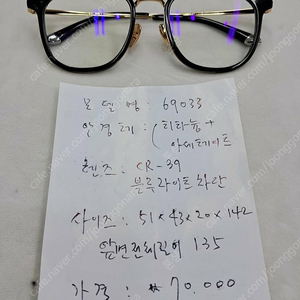 모델명 : 69033
안경테 : (티타늄 +
아세테이트
렌즈 : CR-39
블루라이트차단
사이즈 : 51×43×20×142
앞면전체길이 135
가격 : ₩70,000